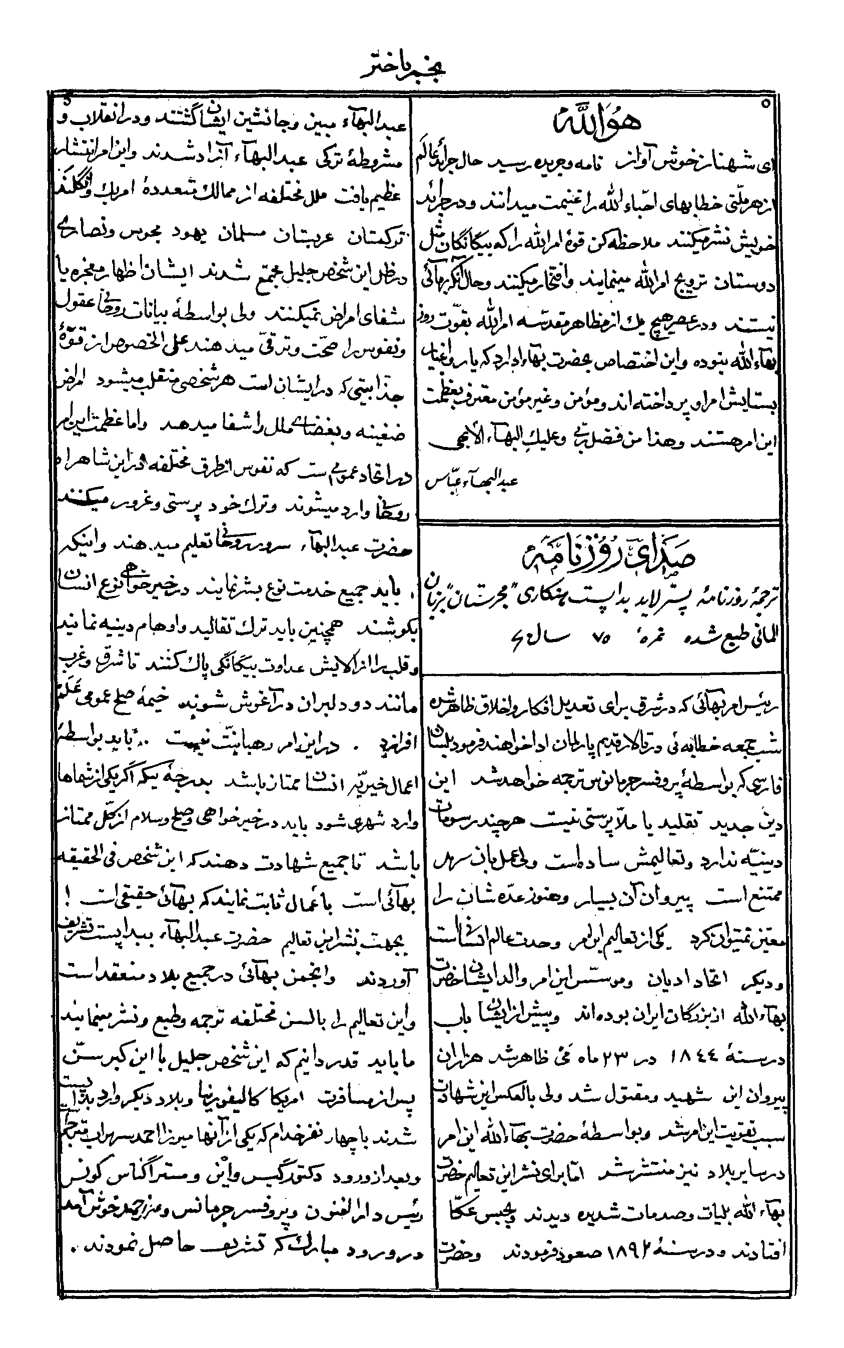 نجم باختر
۵
هُوَ اللّٰه
ای شهناز خوش آواز نامه و جریده رسید حال جرائد عالم
از هر ملّتی خطابهای احبّاء الله را غنیمت میدانند و در جرائد
خویش نشر میکنند ملاحظه کن قوهٔ امرالله را که بیگانگان مثل
دوستان ترویج امرالله مینمایند و افتخار میکنند و حال آنکه بهائی
نیستند و در عصر هیچ یک از مظاهر مقدسه امرالله بقوّت روز
بهاءالله نبوده و این اختصاص بحضرت بهاء دارد که یار و اغیار
بستایش امر او پرداخته اند و مؤمن و غیر مؤمن معترف بعظمت
این امر هستند و هذا من فضل ربّی و علیک البهاء الابهی
عبدالبهآء عبّاس
صدای روزنامه
ترجمهٔ روزنامهٔ پستر لاید بداپست هنکاری "مجرستان" بزبان
المانی طبع شده نمرهٔ ۷۵ سال ۶۰
رئیس امر بهائی که در شرق برای تعدیل افکار و اخلاق ظاهر شده
شب جمعه خطابه ئی در تالار قدیم پارلمان ادا خواهند فرمود بلسان
فارسی که بواسطهٔ پروفسر جرمانوس ترجمه خواهد شد این
دین جدید تقلید یا ملّا پرستی نیست هر چند رسومات
دینیّه ندارد و تعالیمش ساده است ولی عمل بان سهل
ممتنع است پیروان آن بسیار و هنوز عدّه شان را
معیّن نمیتوان کرد یکی از تعالیم این امر وحدت عالم انسانی است
و دیگر اتحاد ادیان و موسّس این امر والد ایشان حضرت
بهاءالله از بزرگان ایران بوده اند و پیش از ایشان باب
در سنهٔ ۱۸۴۴ در ۲۳ ماه می ظاهر شد هزاران
پیروان این شهید و مقتول شد ولی بالعکس این شهادت
سبب تقویت این امر شد و بواسطهٔ حضرت بهآءالله این امر
در سایر بلاد نیز منتشر شد امّا برای نشر این تعالیم حضرت
بهاءالله بلیات و صدمات شدیده دیدند و بحبس عکّا
افتادند و در سنهٔ ۱۸۹۲ صعود فرمودند و حضرت
عبدالبهآء مبین و جانشین ایشان گشتند و در انقلاب و
مشروطهٔ ترکی عبدالبهآء آزاد شدند و این امر انتشار
عظیم یافت ملل مختلفه از ممالک متعددهٔ امریک و انگلند
ترکستان عربستان مسلمان یهود مجوس و نصاری
در ظل این شخص جلیل مجتمع شدند ایشان اظهار معجزه یا
شفای امراض نمیکنند ولی بواسطهٔ بیانات روحانی عقول
و نفوس را صحّت و ترقّی میدهند علی الخصوص از قوّهٔ
جذابیتی که در ایشان است هر شخصی منقلب میشود امراض
ضغینه و بغضای ملل را شفا میدهد و اما عظمت این امر
در اتحاد عمومی است که نفوس از طرق مختلفه در این شاهراه
روحانی وارد میشوند و ترک خود پرستی و غرور میکنند
حضرت عبدالبهآء سرور روحانی تعلیم میدهند و اینکه
باید جمیع خدمت نوع بشر نمایند در خیر خواهی نوع انسان
بکوشند همچنین باید ترک تقالید و اوهام دینیه نمایند
و قلب را از الایش عداوت بیگانگی پاک کنند تا شرق و غرب
مانند دو دلبران در آغوش شوند خیمهٔ صلح عمومی علم
افرازد . در این امر رهبانیّت نیست . باید بواسطهٔ
اعمال خیریّه انسان ممتاز باشد بدرجهٔ یکه اگر یکی از شماها
وارد شهری شود باید در خیر خواهی و صلح و سلام از کلّ ممتاز
باشد تا جمیع شهادت دهند که این شخص فی الحقیقه
بهائی است باعمال ثابت نمایند که بهائی حقیقی است !
بجهت نشر این تعالیم حضرت عبدالبهآء ببداپست تشریف
آوردند و انجمن بهائی در جمیع بلاد منعقد است
و این تعالیم را بالسن مختلفه ترجمه و طبع و نشر مینمایند
ما باید قدر دانیم که این شخص جلیل با این کبر سنّ
پس از مسافرت امریکا کالیفورنیا و بلاد دیگر وارد بداپست
شدند با چهار نفر خدام که یکی از آنها میرزا احمد سهراب مترجم
و بعد از ورود دکتور گیس واین و مستر اگناس کونس
رئیس دارالفنون و پروفسر جرمانس و خوش آمد
در ورود مبارک که تشریف حاصل نمودند .